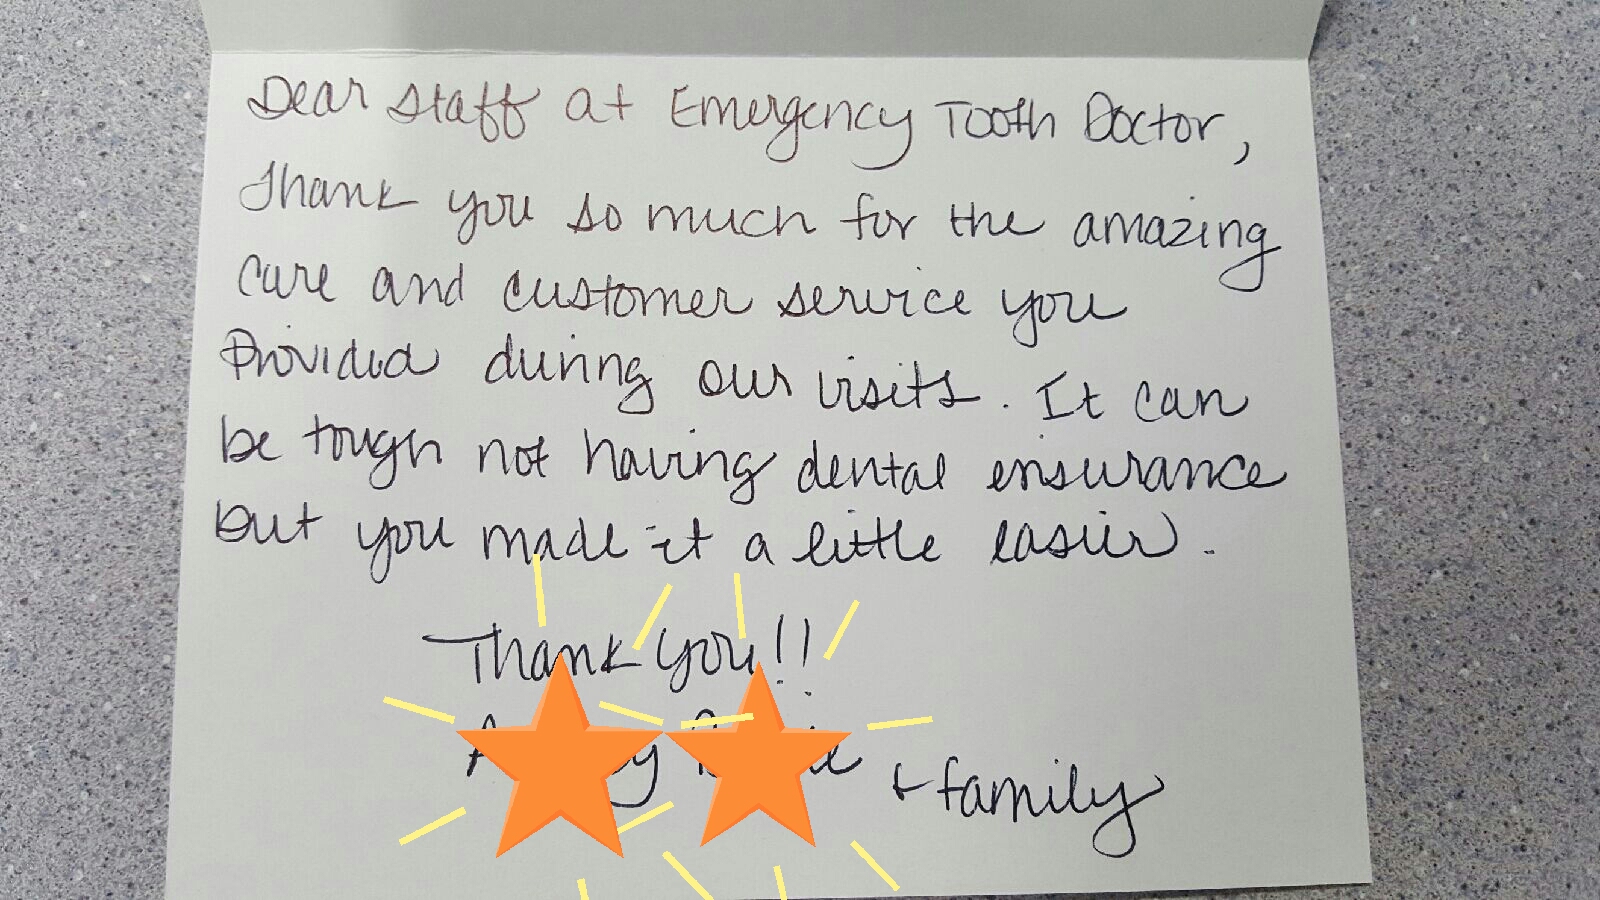 Dear Staff at Emergency Tooth Doctor,
Thank you so much for the amazing
care and customer service you
Provided during our visits. It can
be tough not having dental insurance
but you made it a little easier.
Thank you!!
& family